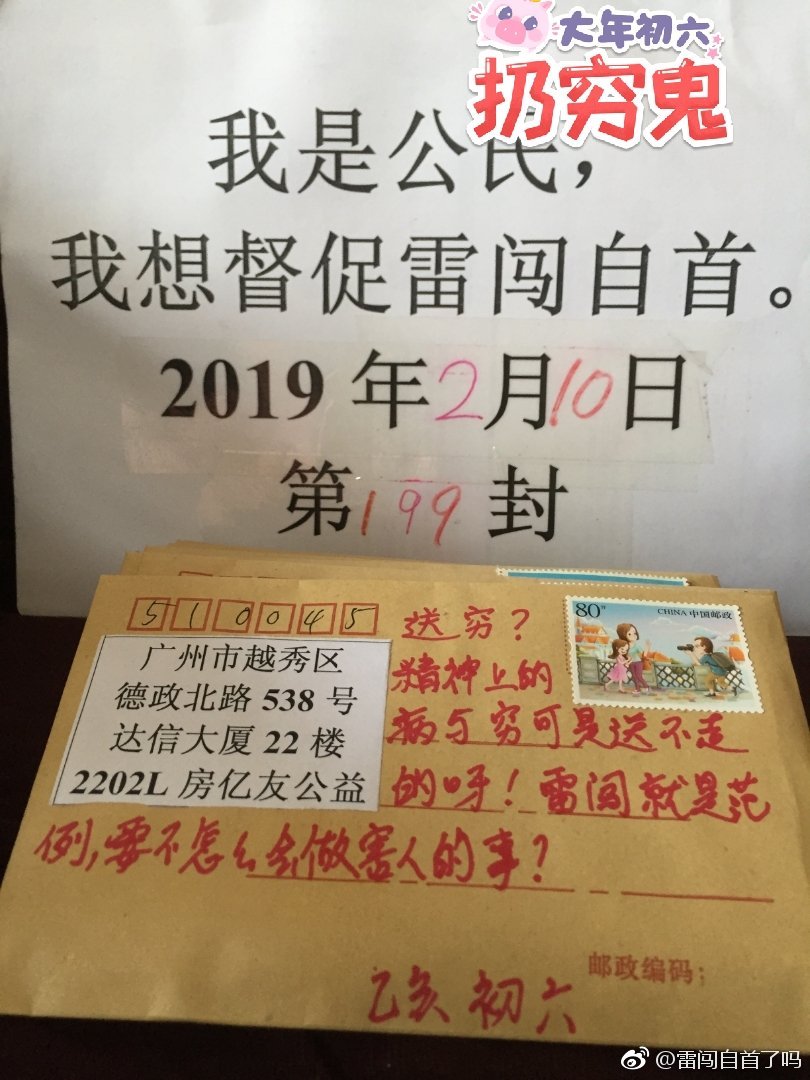 大年初六
扔穷鬼
我是公民，
我想督促雷闯自首。
2019 年2月10日
第199 封
510045
广州市越秀区
德政北路 538 号
达信大厦 22 楼
2202L 房亿友公益
80分
CHINA 中国邮政
送穷？
精神上的
病与穷可是送不走
的呀！雷闯就是范
例，要不怎么会做害人的事？
邮政编码：
乙亥 初六
@雷闯自首了吗